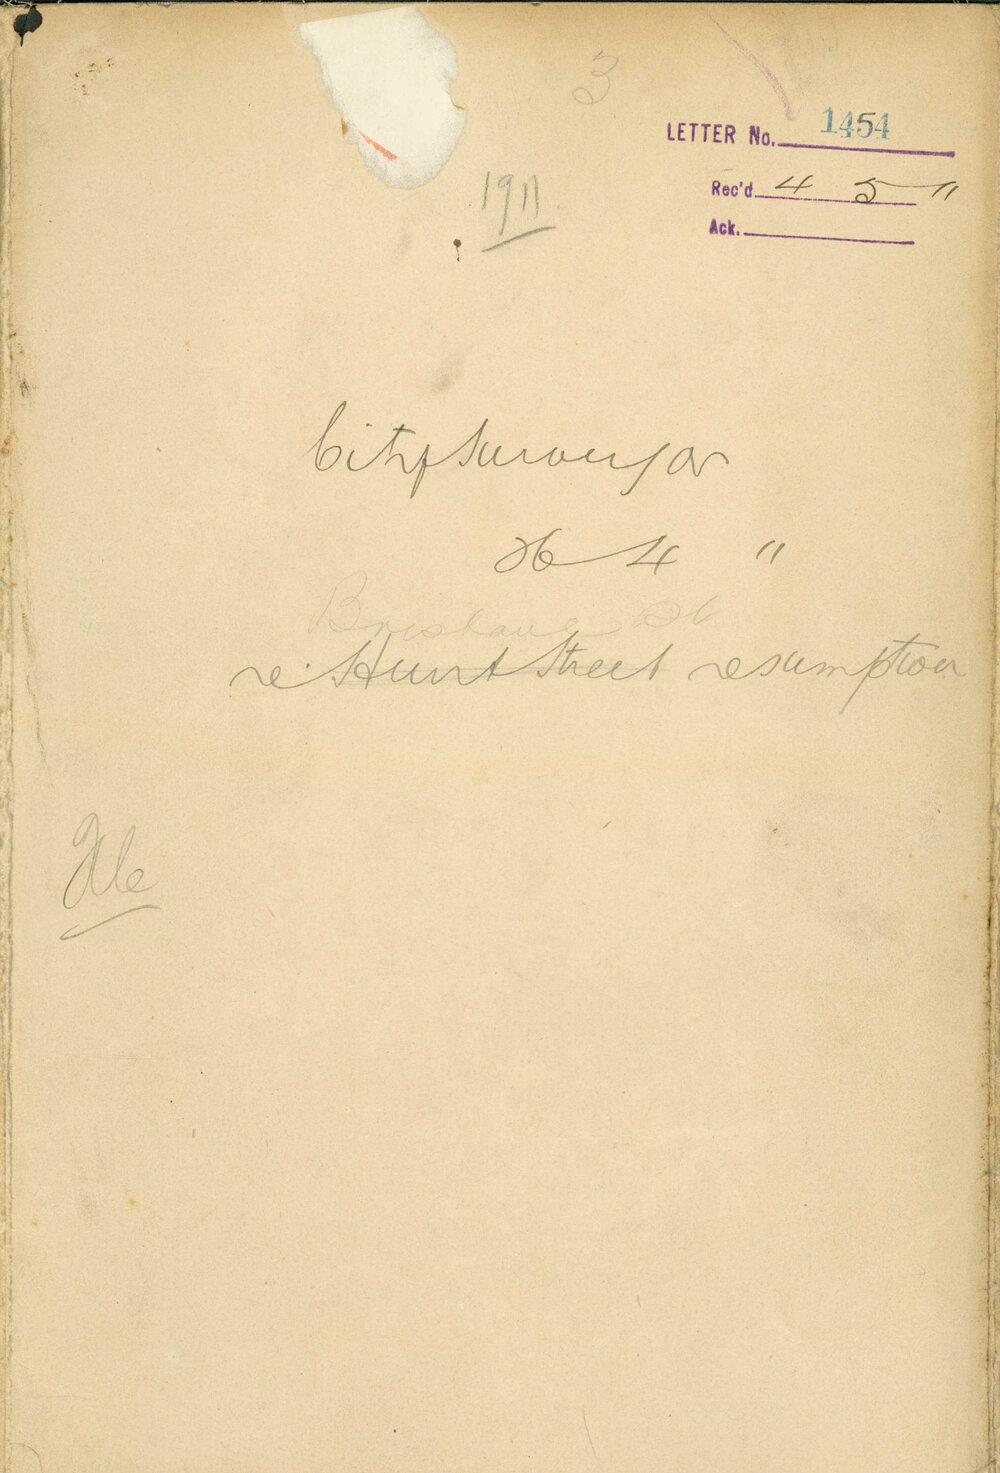 3
LETTER No. 1454
Rec'd 4 5 11
Ack.
1911
City Surveyor
26 4 11
Brisbane St
re Hunt Street resumption
File